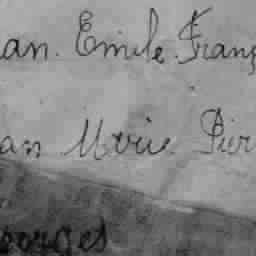 an. Emile. Franç
an Marie Pier
orges